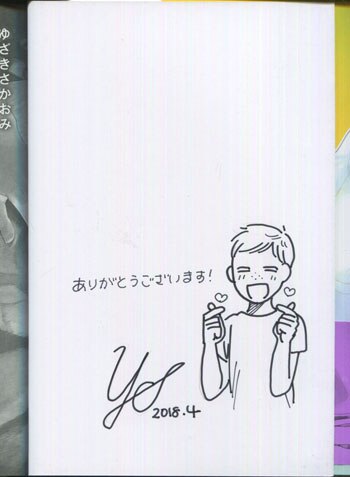 ゆざきさかおみ
ありがとうございます!
YS
2018.4